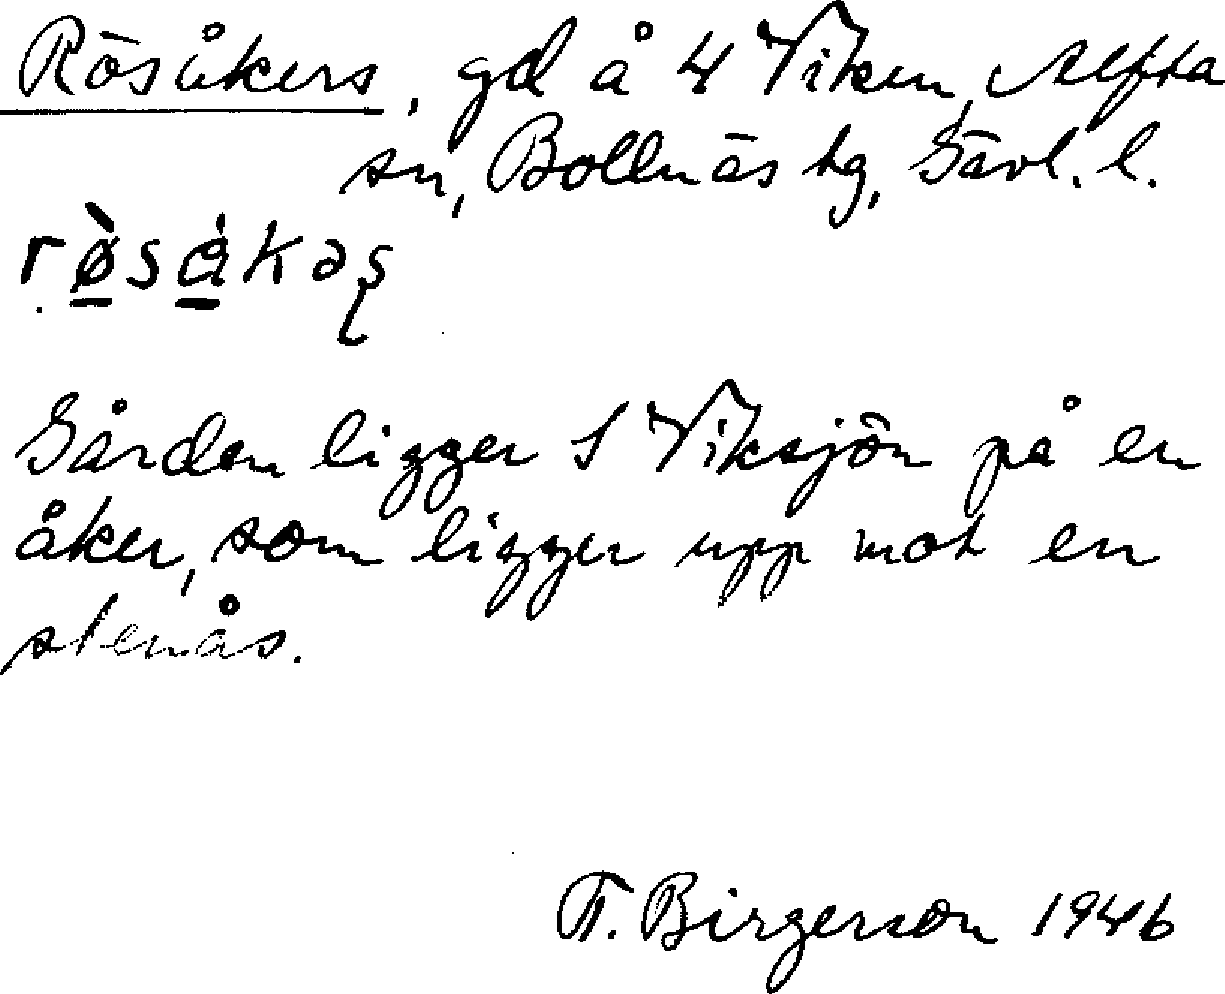 Rösåkers, gd å 4 Viken, Alfta
sn, Bollnäs tg, Gävl. l.
rø̀såkəʂ
Gården ligger S Viksjön på en
åker, som ligger upp mot en
stenås.
F. Birgerson 1946